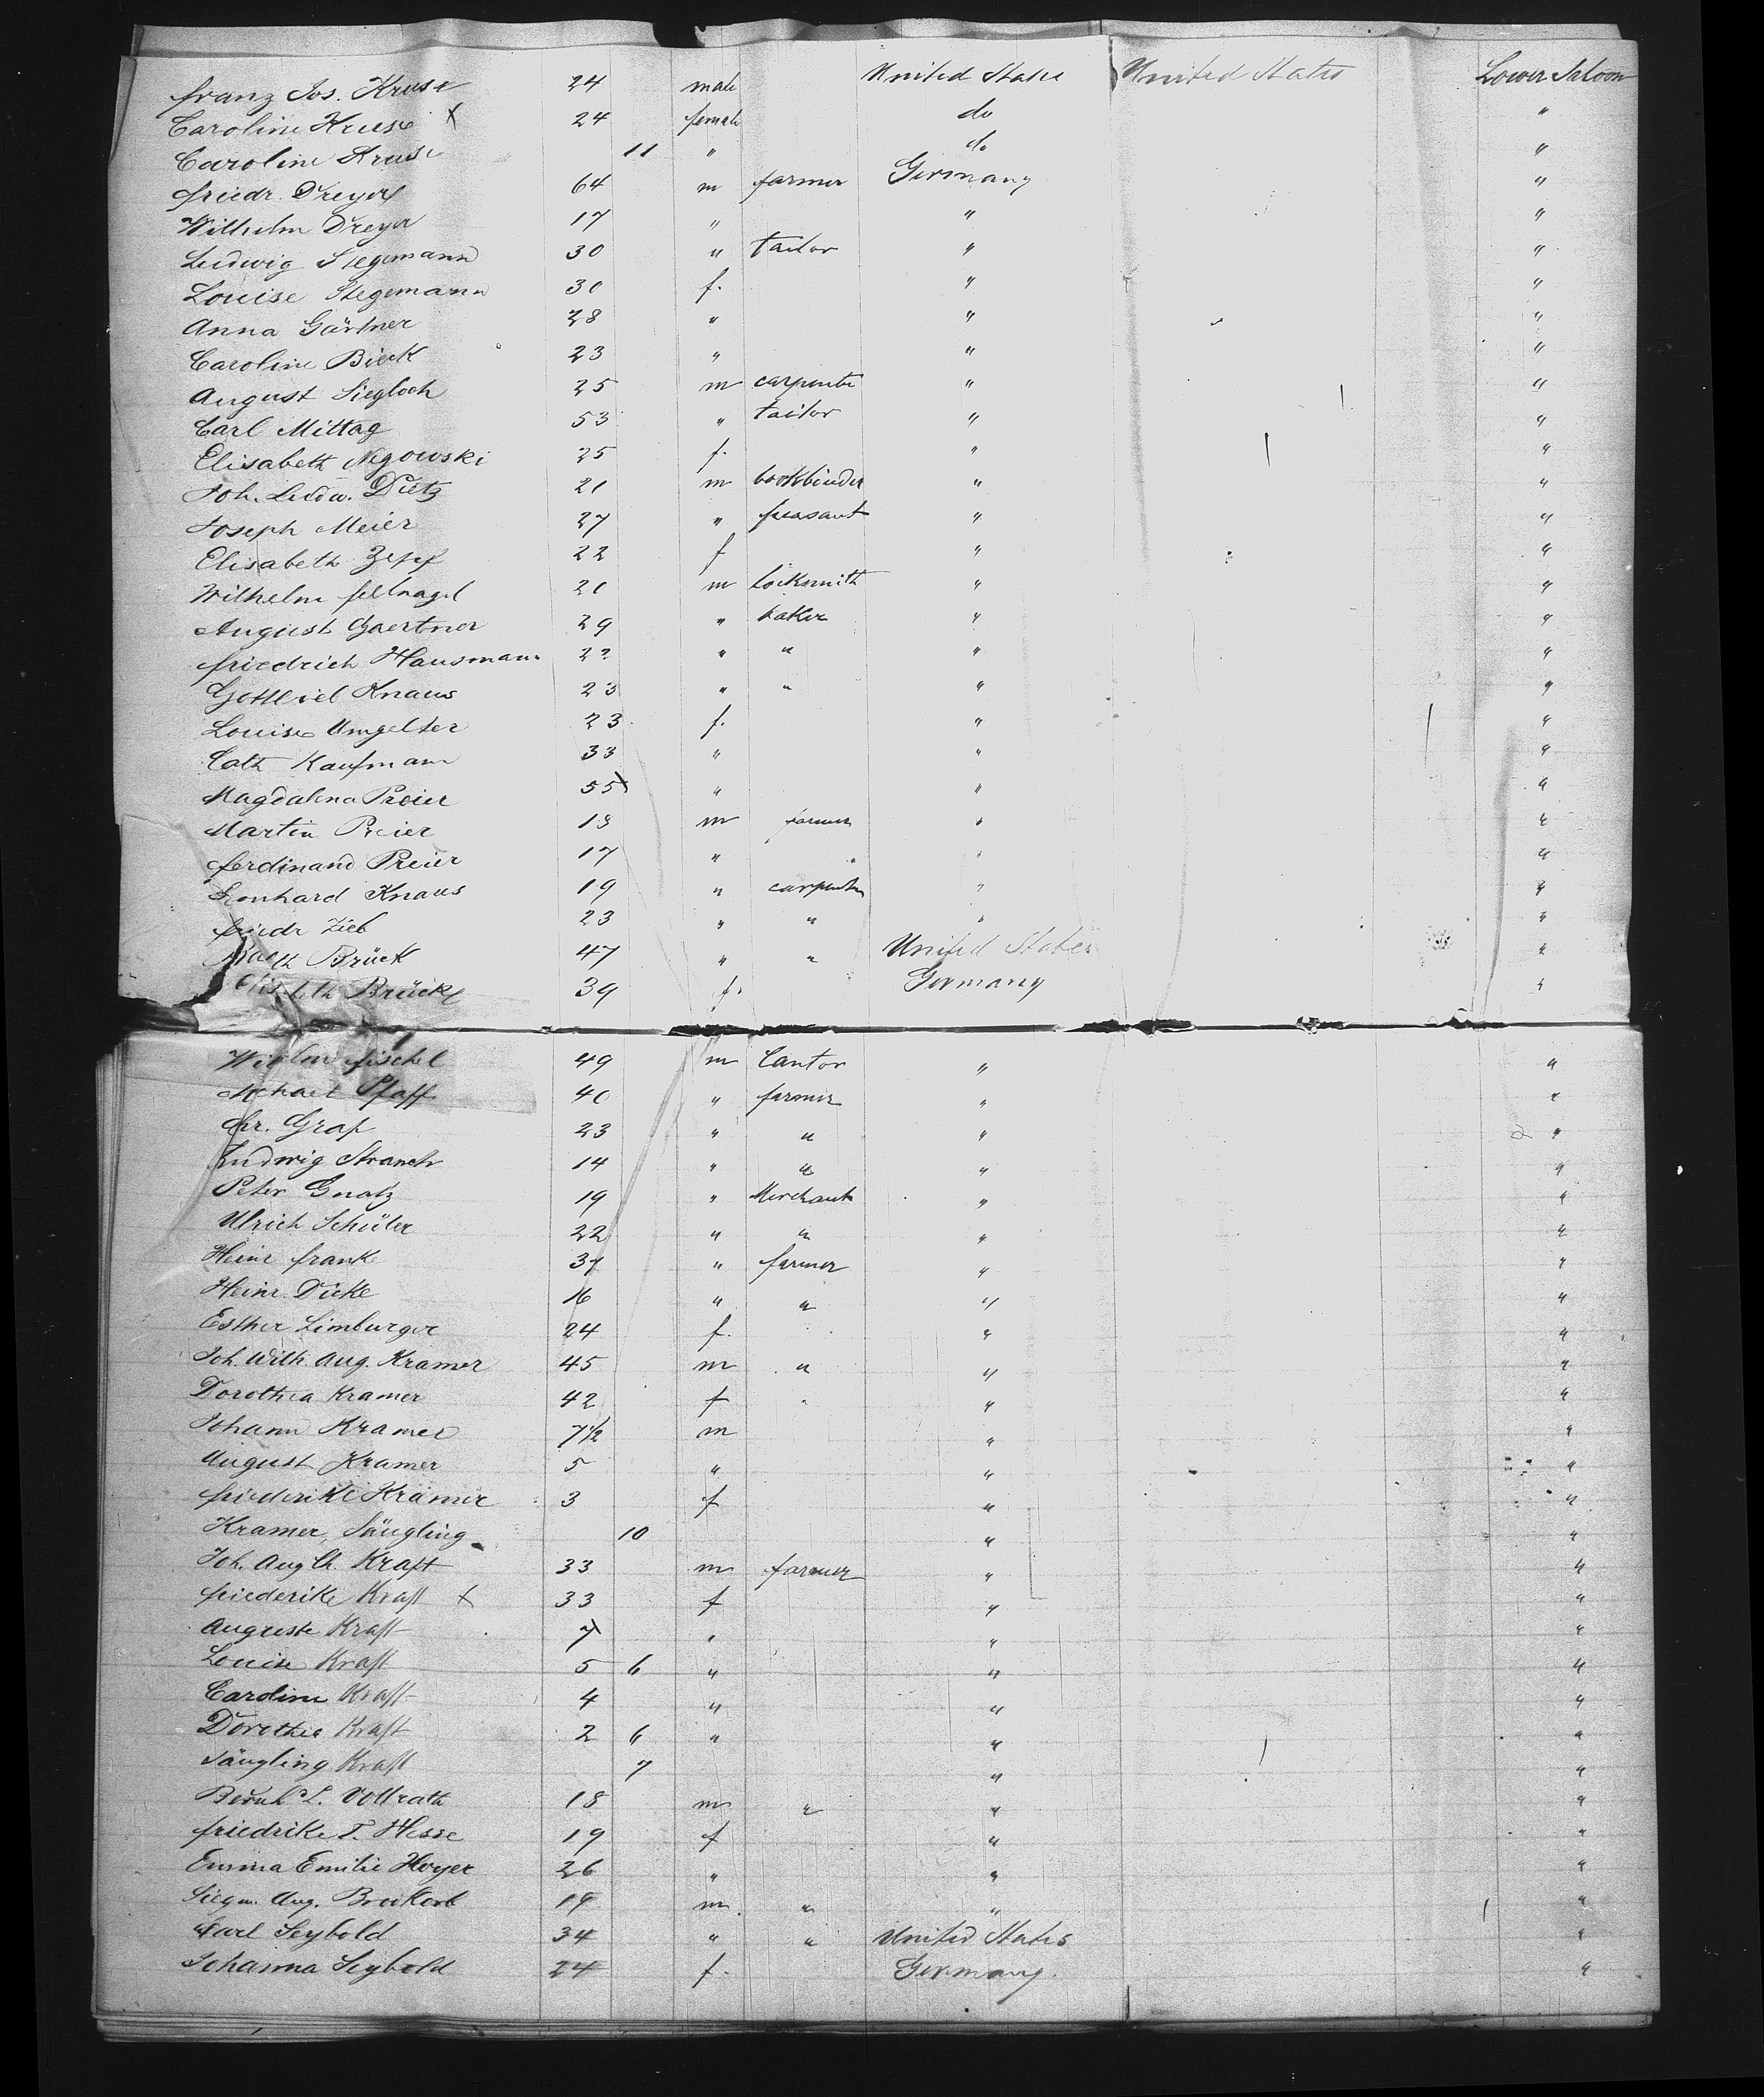 Franz Jos. Kruse 24 male United States United States Lower Saloon
Caroline Kruse X 24 female do "
Caroline Kruse 11 " do "
Friedr. Dreyer 64 m farmer Germany "
Wilhelm Dreyer 17 " " "
Ludwig Stegemann 30 " tailor " "
Louise Stegemann 30 f. " "
Anna Gärtner 28 " " "
Caroline Bieck 23 " " "
August Siegloch 25 m carpenter " "
Carl Mittag 53 " tailor " "
Elisabeth Negowski 25 f. " "
Joh. Ludw. Dietz 21 m bookbinder " "
Joseph Meier 27 " peasant " "
Elisabeth Zepf 22 f " "
Wilhelm Fellnagel 20 m locksmith " "
August Gaertner 29 " baker " "
Friedrich Hausmann 22 " " " "
Gottlieb Knaus 23 " " " "
Louise Umgelter 23 f. " "
Cath Kaufmann 33 " " "
Magdalena Preier 55 " " "
Martin Preier 18 m farmer " "
Ferdinand Preier 17 " " " "
Leonhard Knaus 19 " carpenter " "
Friedr Zieb 23 " " " "
Brück 47 " " United States "
Brück 39 f. Germany "
Fischel 49 m Cantor " "
Michael Pfaff 40 " farmer " "
Chr. Graf 23 " " " "
Ludwig Strauch 14 " " " "
Peter Gnatz 19 " Merchant " "
Ulrich Schüler 22 " " " "
Heinr Franke 37 " farmer " "
Heinr. Dicke 16 " " " "
Esther Limburger 24 f. " "
Joh. Wilh. Aug. Kramer 45 m " " "
Dorothea Kramer 42 f " "
Johann Kramer 7½ m " "
August Kramer 5 " " "
Friederike Kramer 3 f " "
Kramer, Säugling 10 " "
Joh. Aug Ch. Kraft 33 m farmer " "
Friederike Kraft X 33 f " "
Auguste Kraft 7 " " "
Louise Kraft 5 6 " " "
Caroline Kraft 4 " " "
Dorothea Kraft 2 6 " " "
Säugling Kraft 7 " "
Bernh L. Vollrath 18 m " " "
Friedrike T. Hesse 19 f " "
Emma Emilie Hoyer 26 " " "
Siegm. Aug. 19 m " " "
Carl Seybold 34 " " United States "
Johanna Seybold 24 f. Germany. "